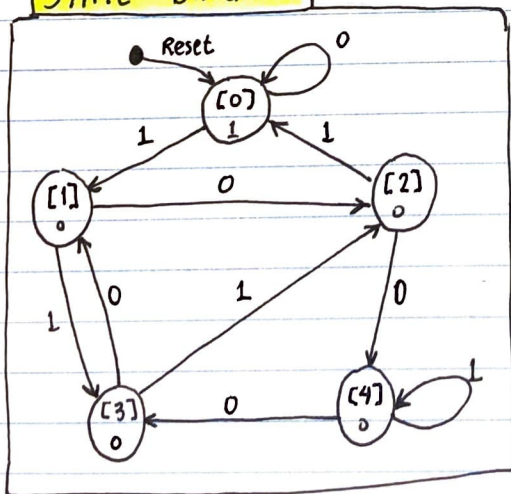 Reset
0
[0]
1
1
1
[1]
0
0
[2]
0
1
0
1
0
[3]
0
0
[4]
0
1